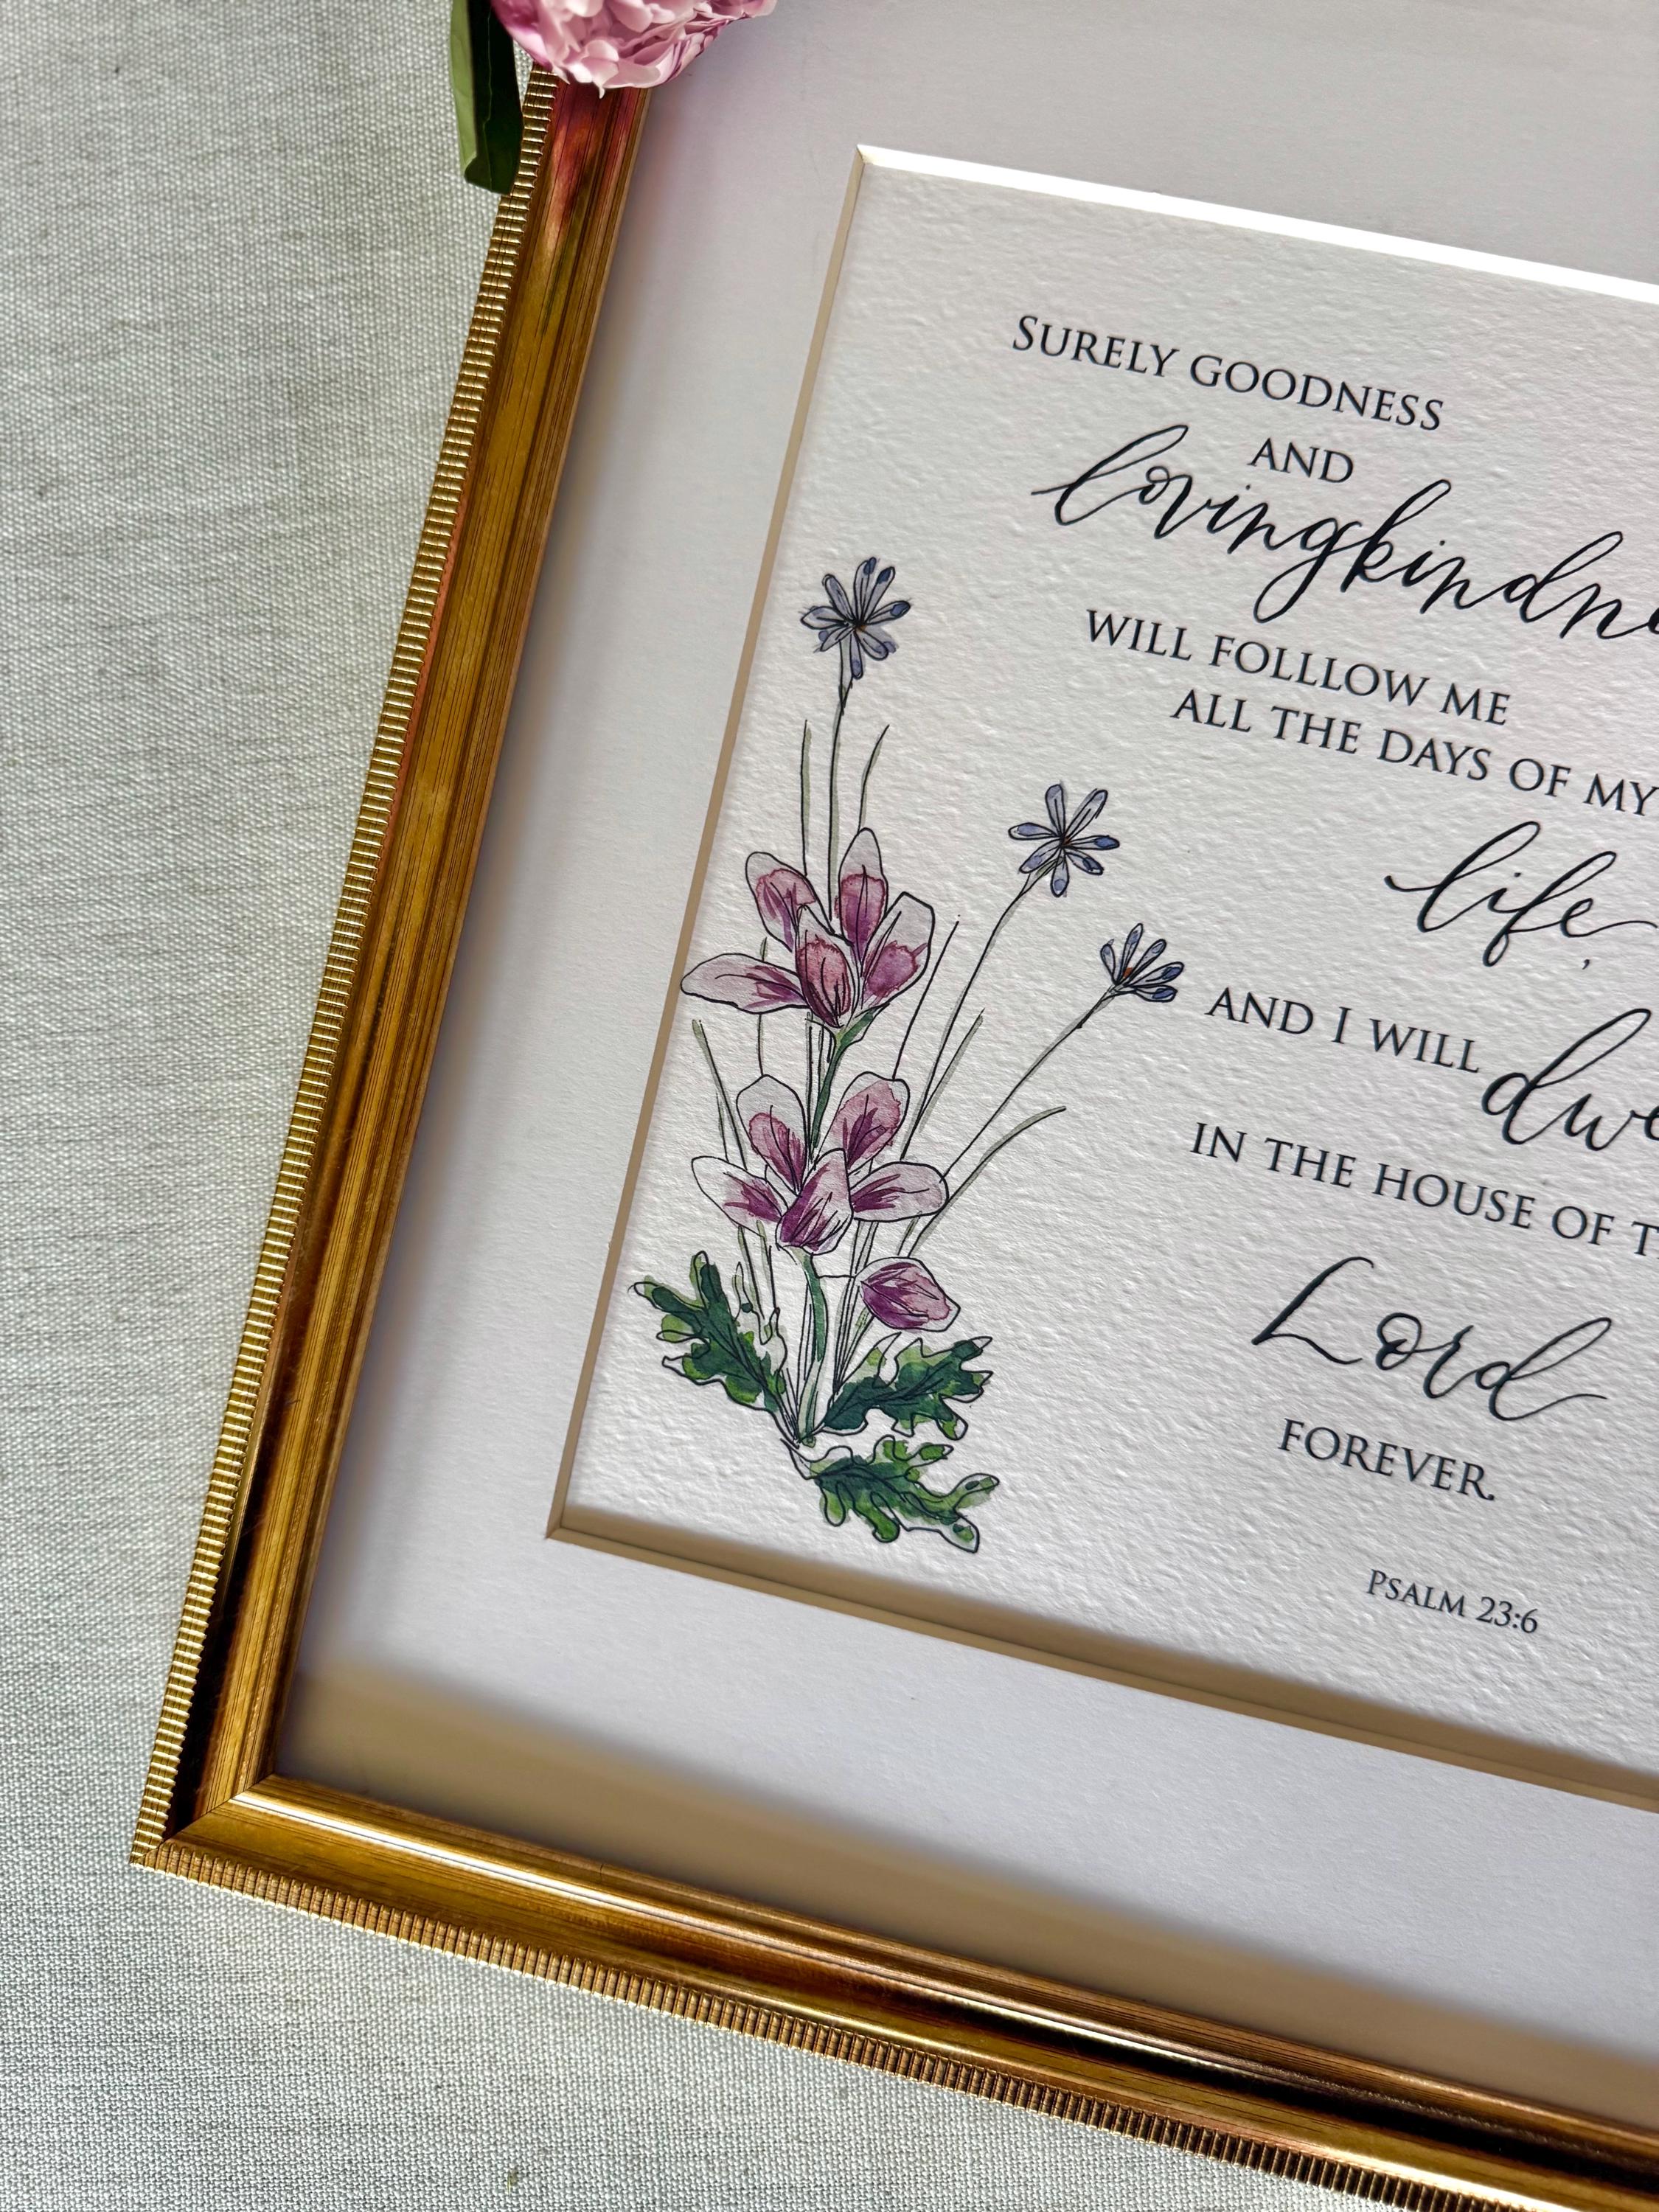 SURELY GOODNESS
AND
lovingkindne
WILL FOLLLOW ME
ALL THE DAYS OF MY
life,
AND I WILL dwe
IN THE HOUSE OF T
Lord
FOREVER.
PSALM 23:6